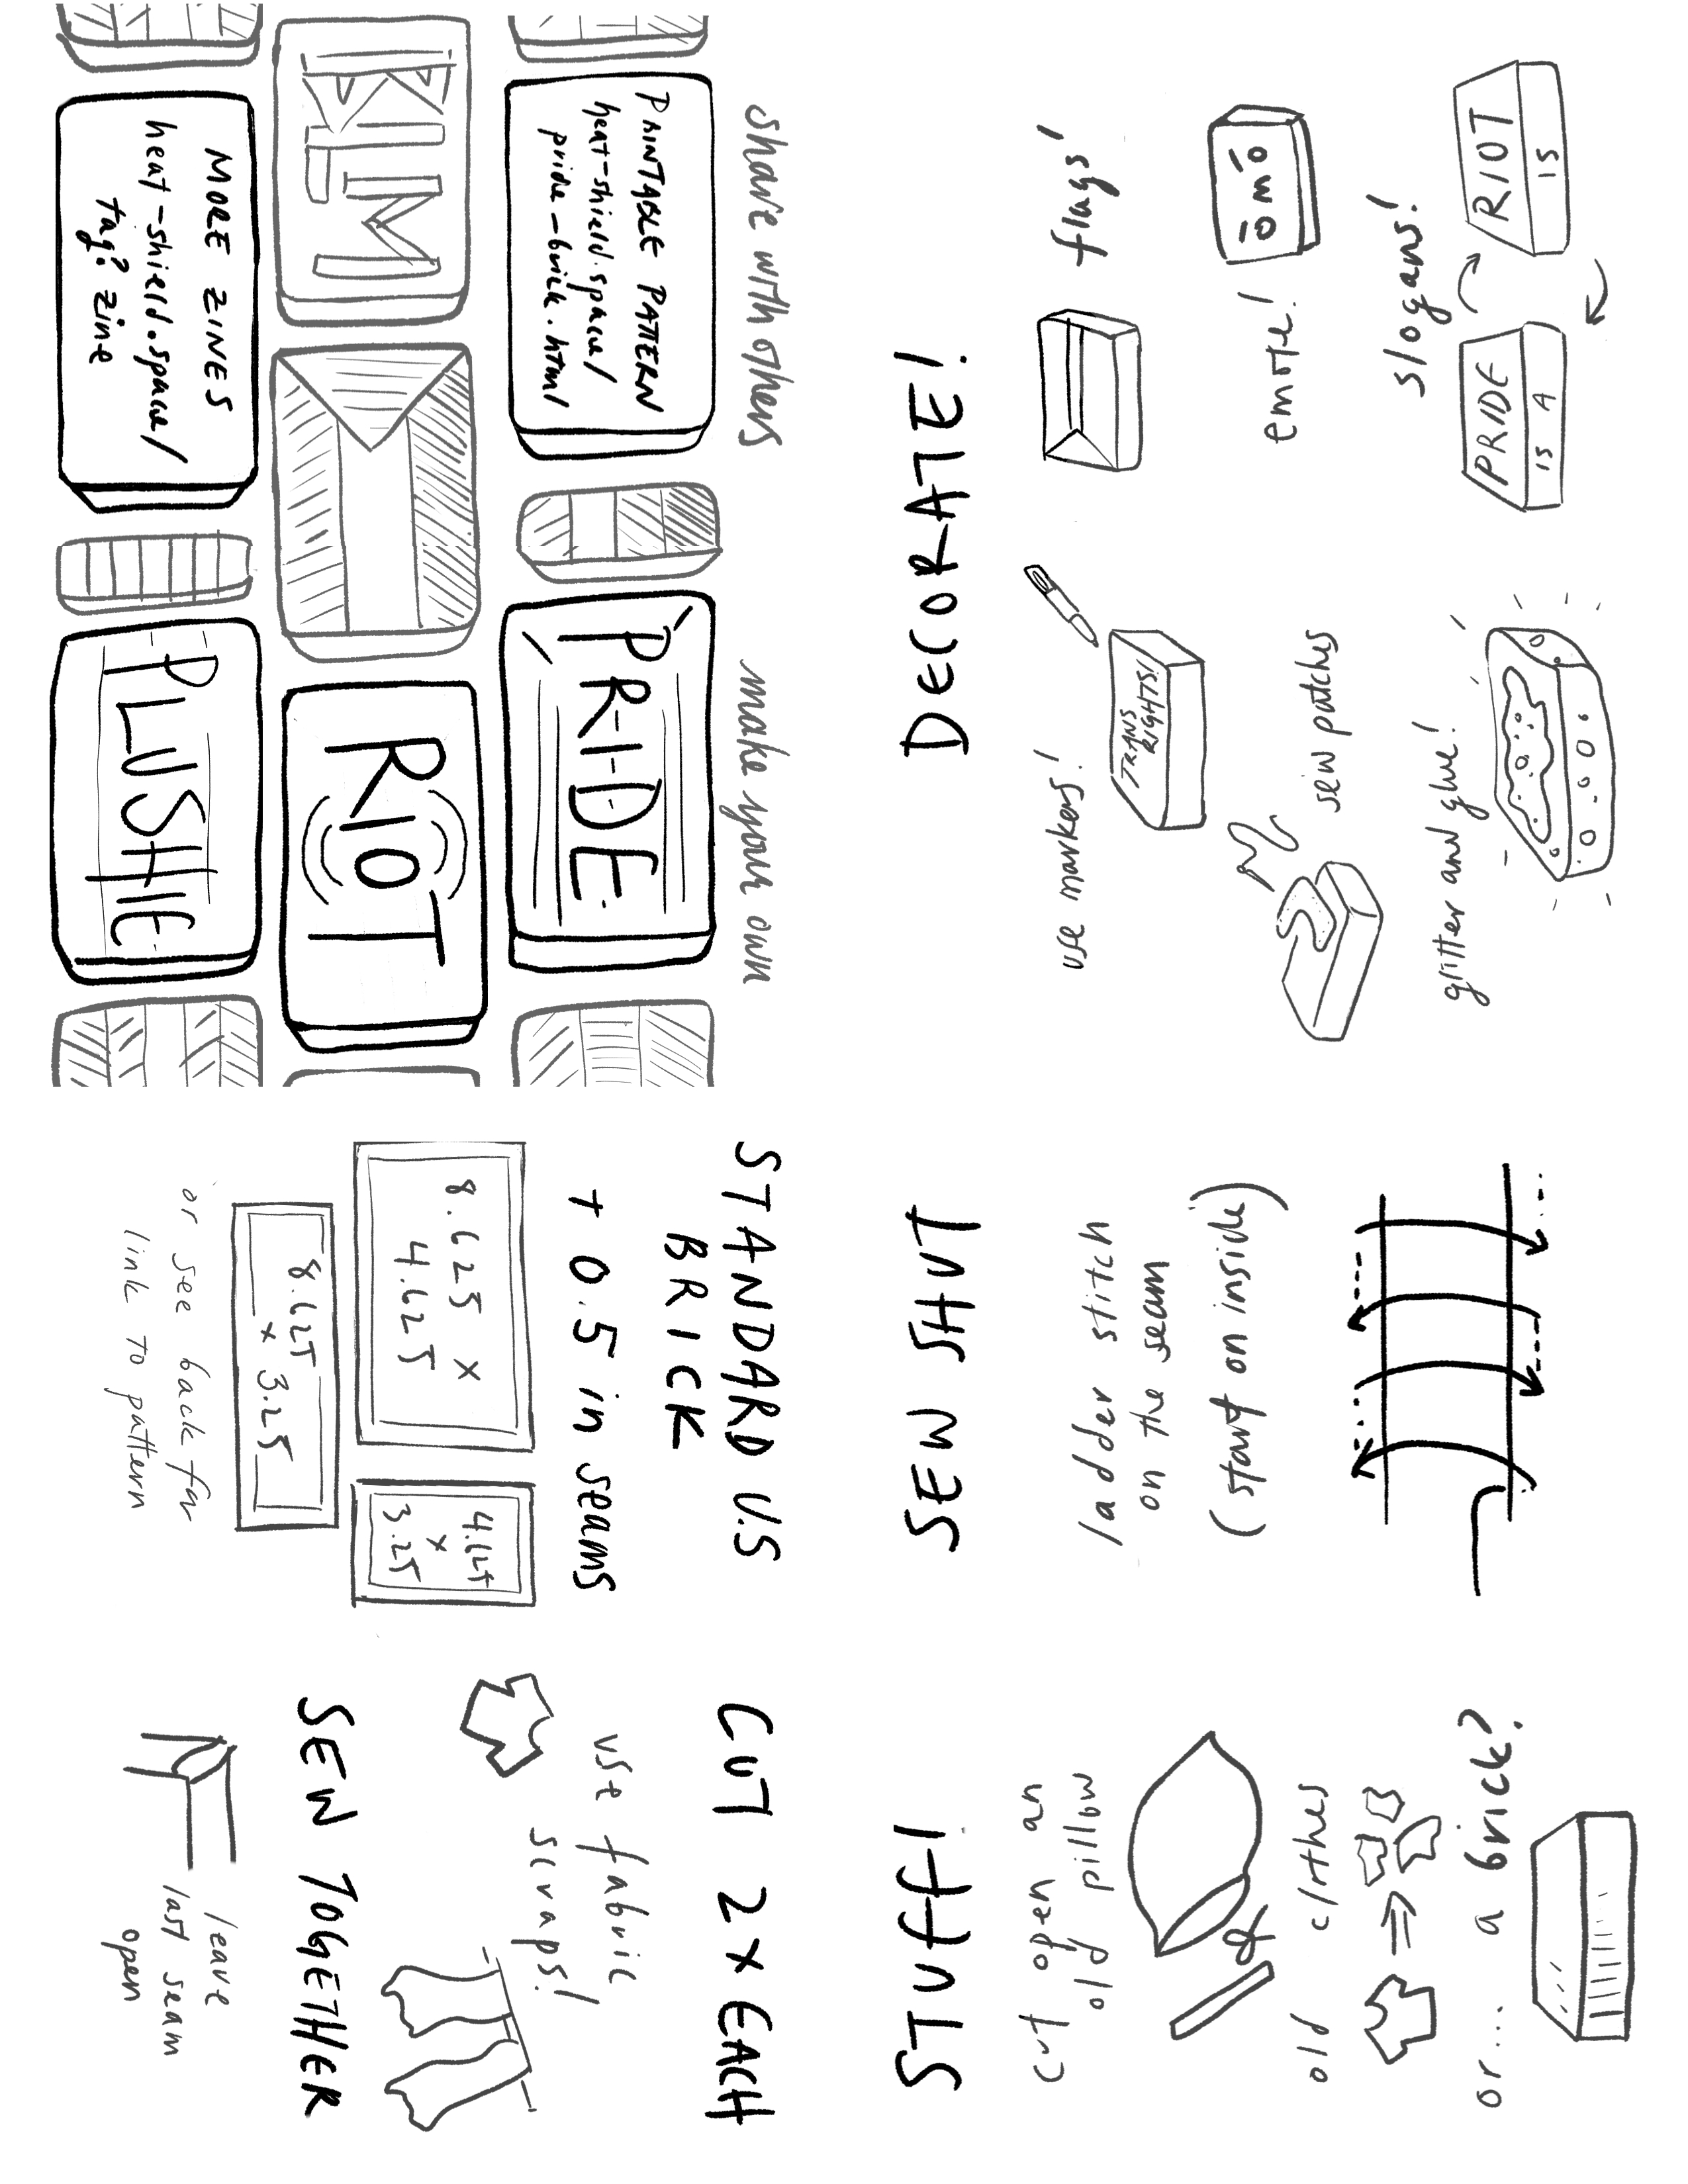 make your own
PRIDE
RIOT
PLUSHIE
STANDARD U.S
BRICK
+ 0.5 in seams
8.625 x
4.625
4.625
x
3.25
8.625
x 3.25
or see back for
link to pattern
CUT 2x EACH
use fabric
scraps!
SEW TOGETHER
leave
last seam
open
STUFF!
cut open an
old pillow
old clothes
or... a brick?
SEW SHUT
ladder stitch
on the seam
(start on inside)
DECORATE!
use markers!
TRANS
RIGHTS!
sew patches
glitter and glue!
flags!
emote!
slogans!
PRIDE
IS A
RIOT
IS
share with others
PRINTABLE PATTERN
heat-shield.space/
pride-brick.html
BLM
MORE ZINES
heat-shield.space/
tag? zine